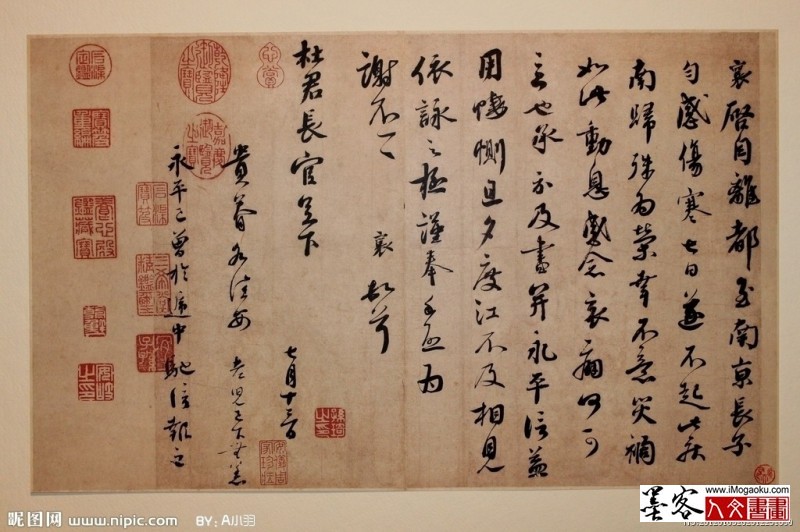 襄啓自離都至南京長子
勻感傷寒七日遂不起此疾
南歸殊為榮幸不意災禍
如此動息感念哀痛何可
言也承示及書并永平信益
用悽惻旦夕度江不及相見
依詠之極謹奉手啓為
謝不一一 襄 頓首
杜君長官足下
七月十三日
貴眷各佳安 老兒已下無恙
永平已曾於遞中馳信報之
昵图网 www.nipic.com BY: A小羽
墨客
www.iMogaoku.com
人文書畫